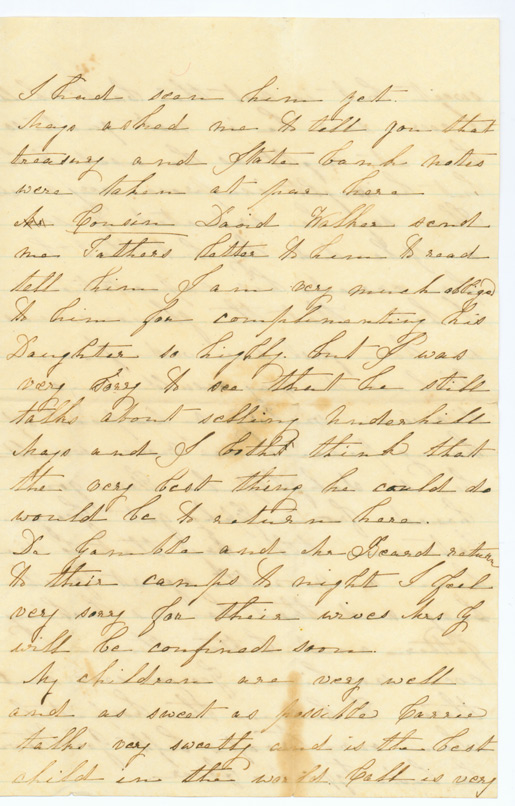 I had seen him yet.
Mays asked me to tell you that
treasury and State bank notes
were taken at par here
Mr Cousin David Walker send
me Fathers letter to him to read
tell him I am very much obliged
to him for complimenting his
Daughter so highly. but I was
very sorry to see that he still
talks about selling Underhill
Mays and I both think that
the very best thing he could do
would be to return here.
Dr Gamble and Mr Beard return
to their camps to night I feel
very sorry for their wives Mrs G
will be confined soon.
My children are very well
and as sweet as possible Carrie
talks very sweetly and is the best
child in the world Call is very